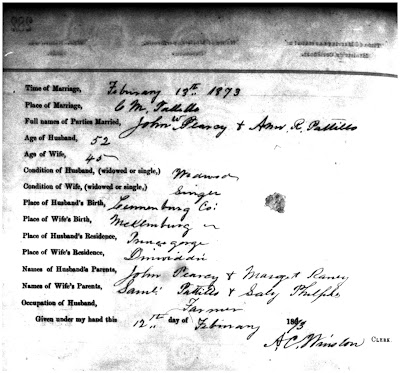 Time of Marriage, February 13th 1873
Place of Marriage, C M. Pattillo
Full names of Parties Married, John W Pearcy & Ann R. Pattillo
Age of Husband, 52
Age of Wife, 45
Condition of Husband, (widowed or single,)
Condition of Wife, (widowed or single,) Single
Place of Husband's Birth, Lunenburg Co:
Place of Wife's Birth, Mecklenburg
Place of Husband's Residence,
Place of Wife's Residence, Dinwiddie
Names of Husband's Parents, John Pearcy & Margret Raney
Names of Wife's Parents, Saml. Pattillo & Saly
Occupation of Husband, Farmer
Given under my hand this 12th day of February 1873
A C. Winston CLERK.